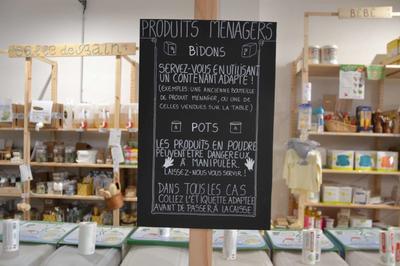 PRODUITS MÉNAGERS
BIDONS
SERVEZ-VOUS EN UTILISANT
UN CONTENANT ADAPTÉ !
(EXEMPLES : UNE ANCIENNE BOUTEILLE
DE PRODUIT MÉNAGER, OU UNE DE
CELLES VENDUES SUR LA TABLE)
POTS
LES PRODUITS EN POUDRE
PEUVENT ÊTRE DANGEREUX
À MANIPULER
LAISSEZ-NOUS VOUS SERVIR !
DANS TOUS LES CAS
COLLEZ L'ÉTIQUETTE ADAPTÉE
AVANT DE PASSER À LA CAISSE
Salle de Bain
BÉBÉ